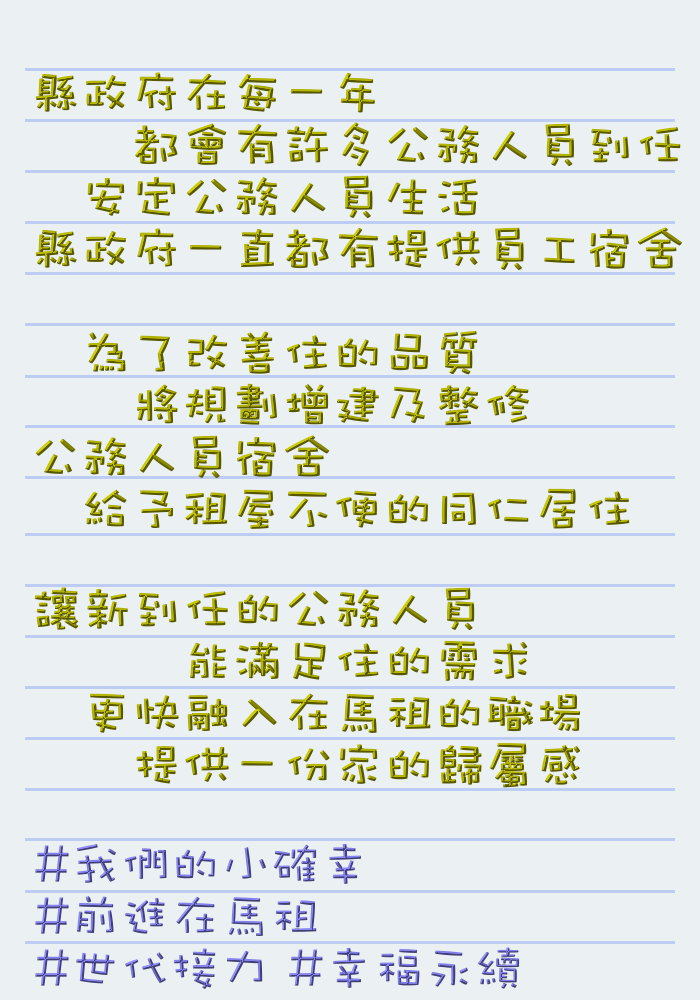 縣政府在每一年
都會有許多公務人員到任
安定公務人員生活
縣政府一直都有提供員工宿舍
為了改善住的品質
將規劃增建及整修
公務人員宿舍
給予租屋不便的同仁居住
讓新到任的公務人員
能滿足住的需求
更快融入在馬祖的職場
提供一份家的歸屬感
#我們的小確幸
#前進在馬祖
#世代接力 #幸福永續